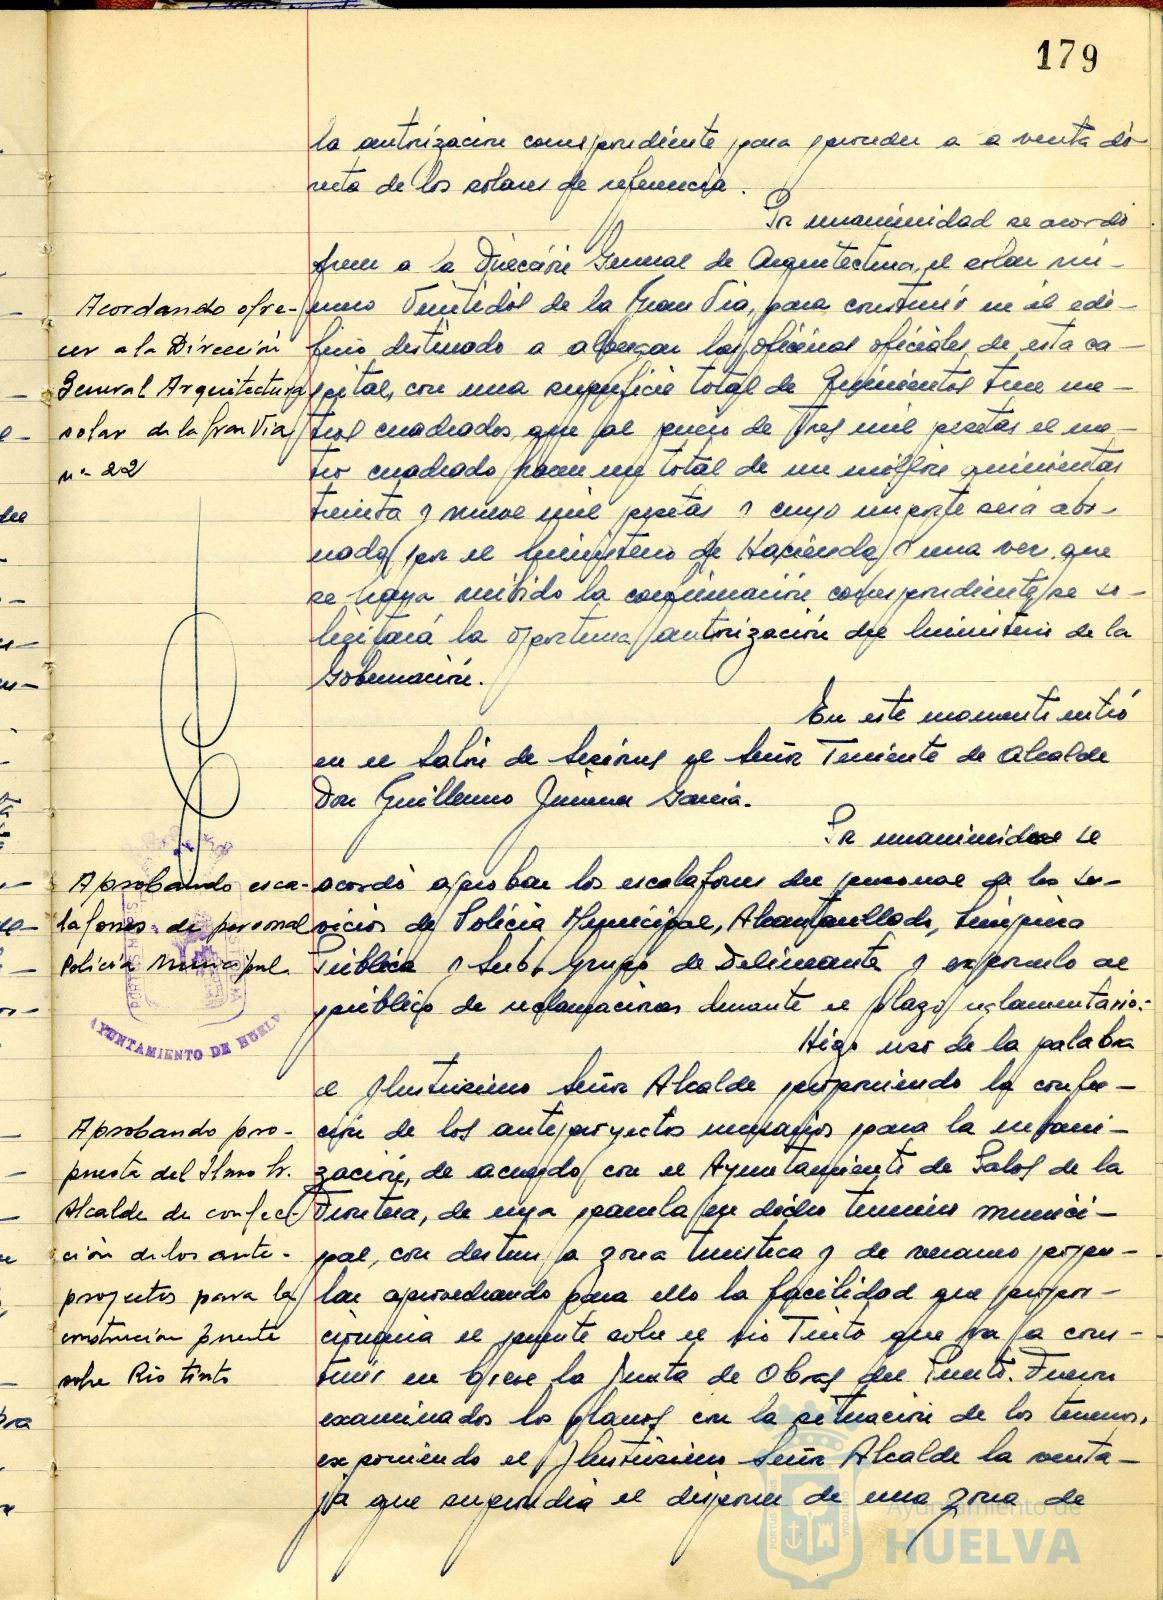 179
la autorización correspondiente para proceder a a venta di-
recta de los solares de referencia.
Por unanimidad se acordó
Acordando ofre-
cer a la Dirección
General Arquitectura
solar de la Gran Via
nº 22
ofrecer a la Dirección General de Arquitectura, el solar nú-
mero Veintidós de la Gran Via, para construir en él edi-
ficio destinado a albergar las oficinas oficiales de esta ca-
pital, con una superficie total de Quinientos trece me-
tros cuadrados, que al precio de Tres mil pesetas el me-
tro cuadrado hacen un total de un millón quinientas
treinta y nueve mil pesetas y cuyo importe será abo-
nado por el Ministerio de Hacienda y una vez que
se haya recibido la confirmación correspondiente se so-
licitará la oportuna autorización del Ministerio de la
Gobernación.
En este momento entró
en el Salón de Sesiones el Señor Teniente de Alcalde
Don Guillermo Jimenez García.
Por unanimidad se
Aprobando esca-
lafones de personal
Policia Municipal
acordó aprobar los escalafones del personal de los ser-
vicios de Policia Municipal, Alcantarillado, Limpieza
Pública y Sub-grupo de Delineante y exponerlo al
público de reclamaciones durante el plazo reglamentario.
AYUNTAMIENTO DE HUELVA
Hizo uso de la palabra
el Ilustrisimo Señor Alcalde proponiendo la confec-
Aprobando pro-
puesta del Ilmo Sr.
Alcalde de confec-
ción de los ante-
proyectos para la
construcion puente
sobre Rio tinto
ción de los anteproyectos necesarios para la urbani-
zación, de acuerdo con el Ayuntamiento de Palos de la
Frontera, de una parcela en dicho termino munici-
pal, con destino a zona turistica y de veraneo popu-
lar aprovechando para ello la facilidad que propor-
cionaria el puente sobre el rio Tinto que va a cons-
truir en breve la Junta de Obras del Puerto. Fueron
examinados los planos con la situación de los terrenos,
exponiendo el Ilustrisimo Señor Alcalde la venta-
ja que supondria el disponer de una zona de
Ayuntamiento de
HUELVA